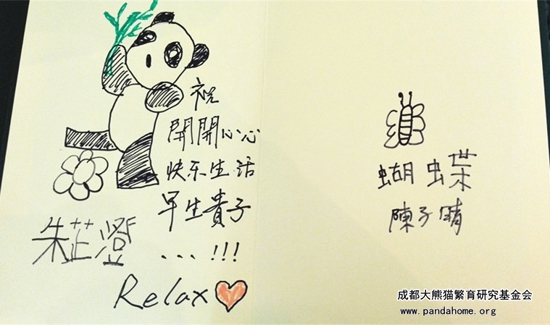 祝
開開心心
快乐生活
早生貴子
朱芷澄 ...!!!
Relax
蝴蝶
陳子晴
成都大熊猫繁育研究基金会
www.pandahome.org